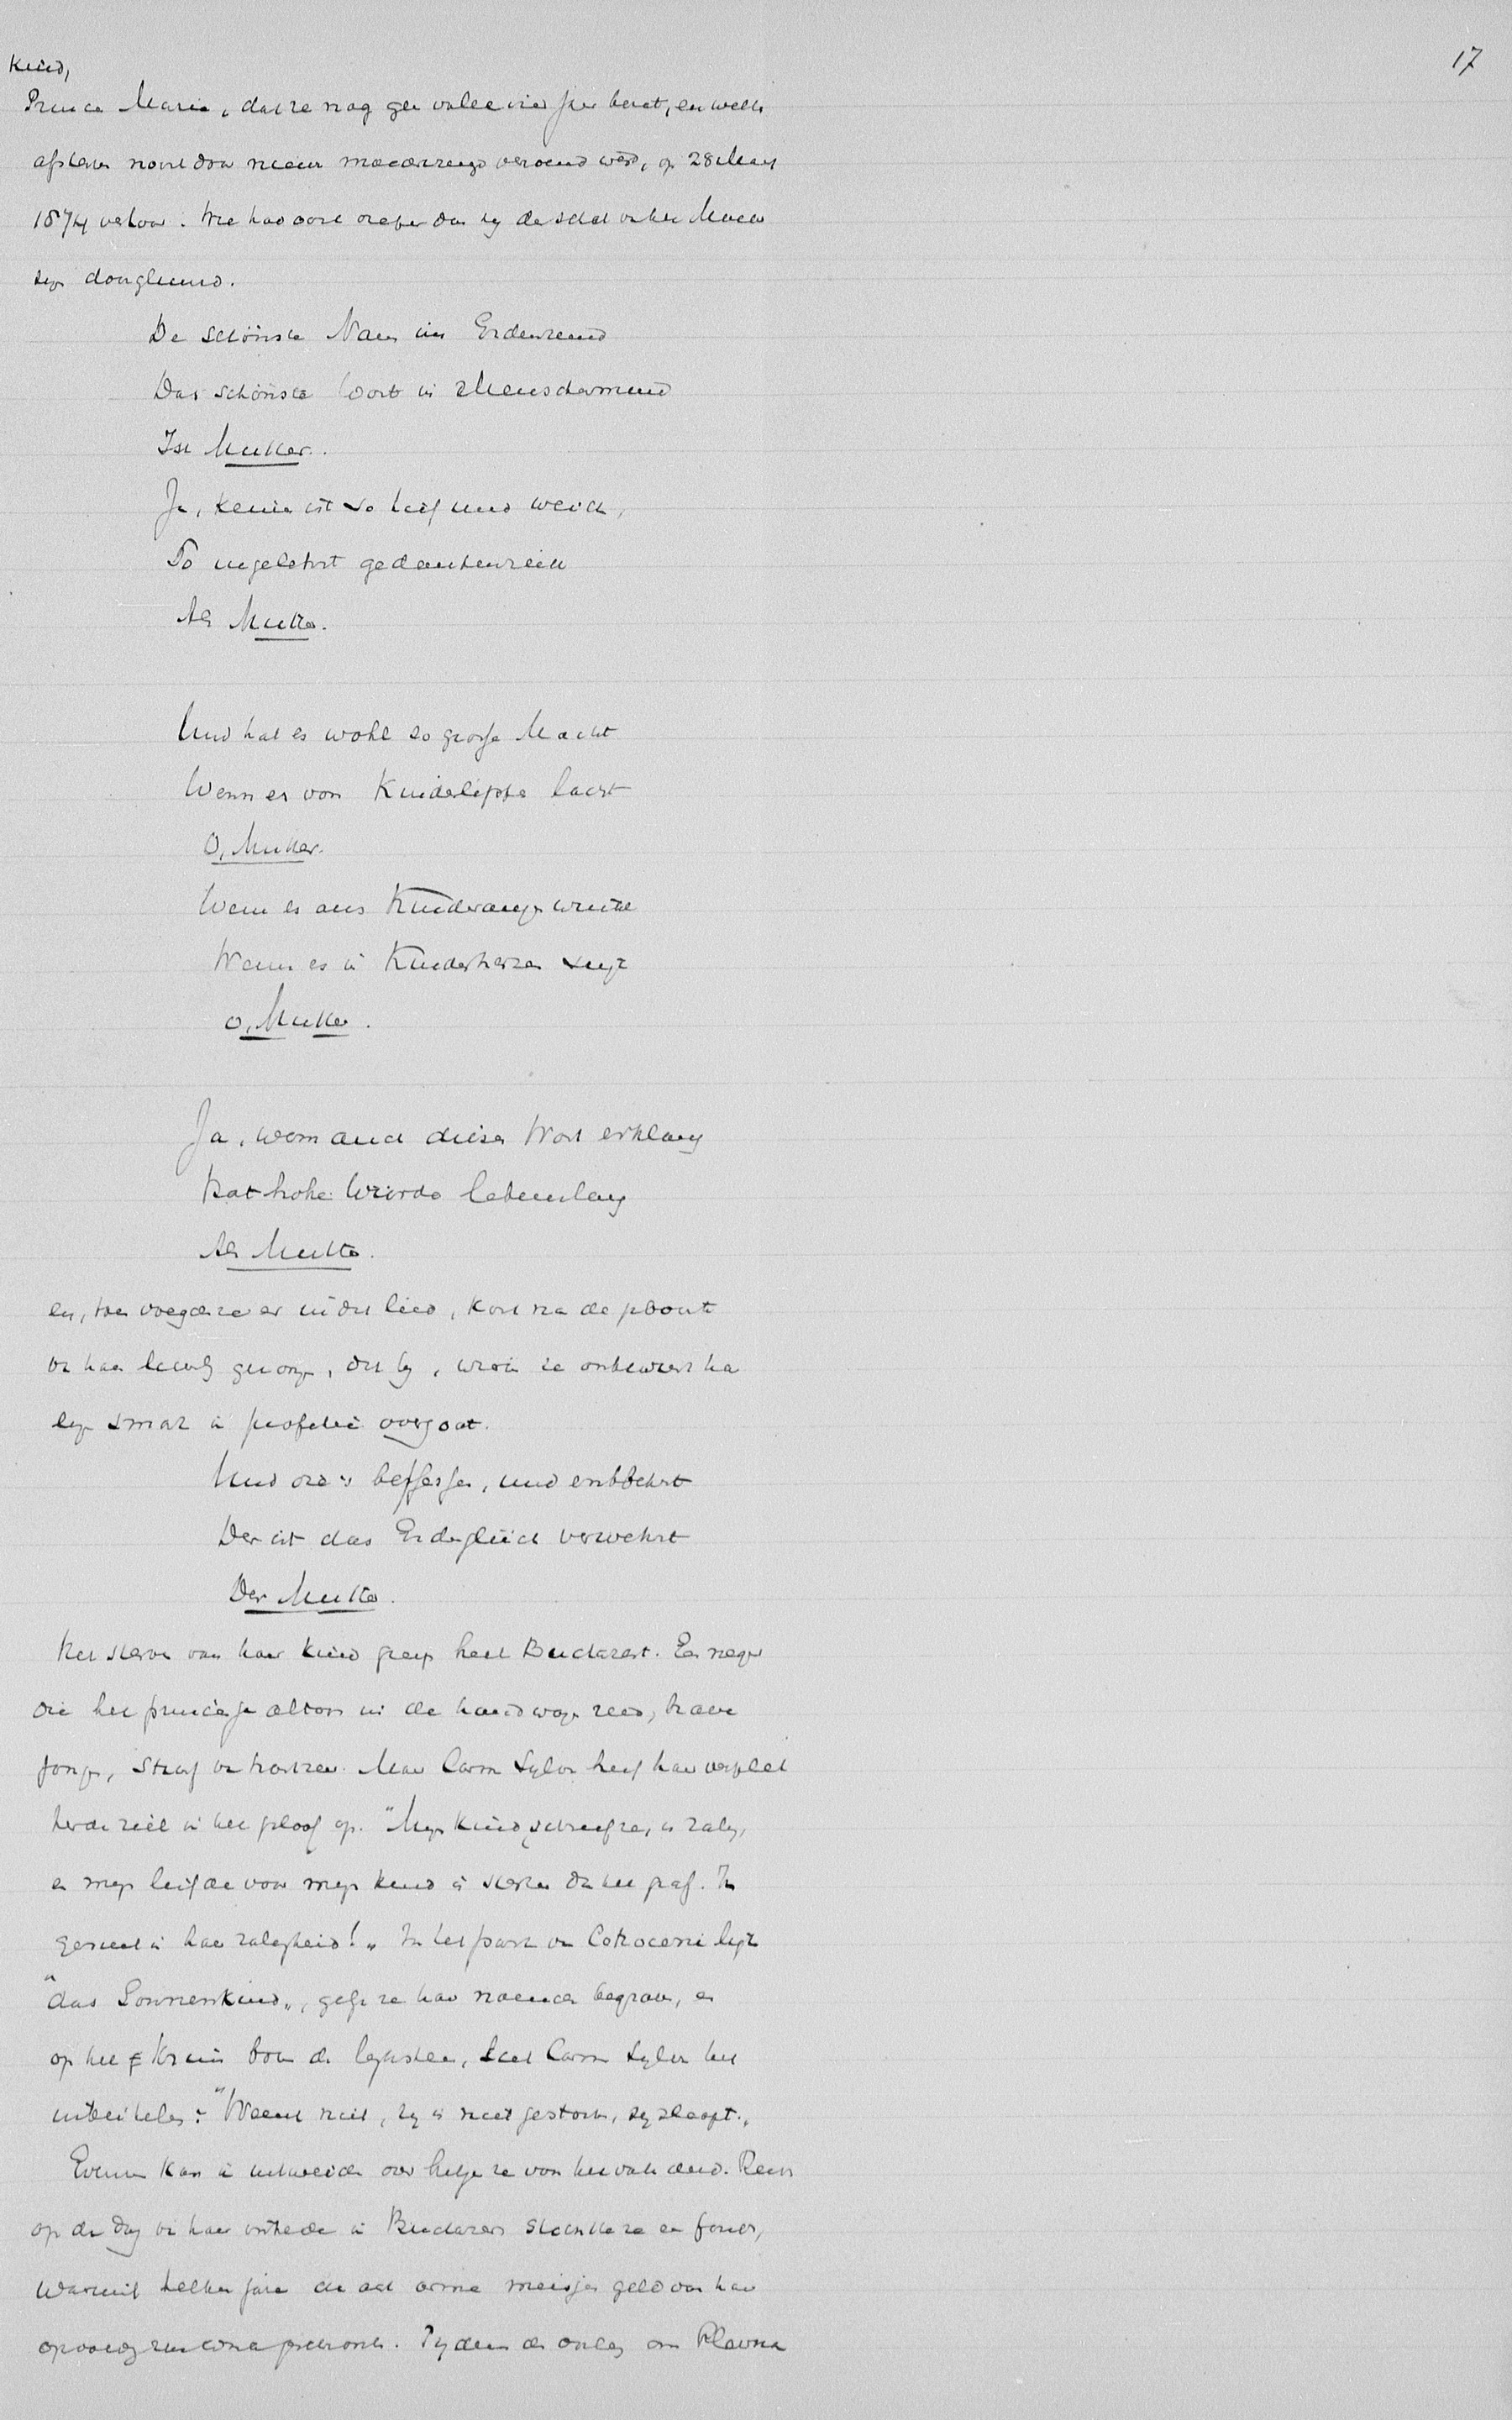 17
Kind,
Princes Marie, dat ze nog geen volle vier jaar bezat, en welk
afsterven nooit door nieuwe moedervreugd verzoend werd, op 28 Maart
1874 verloor. Wie had ooit dieper dan zij de schat van het Moeder
zijn doorgloeid.
De schönste Nam im Erdenrund
Das schönste Wort in Menschenmund
Ist Mutter.
Ja, keine ist so tief und weich,
So ungelehrt gedankenreich
Als Mutter.
Und hat es wohl so große Macht
Wenn es von Kinderlippe lacht
O, Mutter.
Wenn es aus Kinderauge winkt
Wenn es in Kinderherzen singt
O, Mutter.
Ja, wem auch dieses Wort erklang
Hat hohe Würde lebenslang
Als Mutter.
en, toen voegde ze er in dit lied, kort na de geboorte
van haar bij, waarin ze onbewust haar
smart in profetie overgoot.
Und die's besessen, und entbehrt
Der ist das Erdenglück verwehrt
Der Mutter.
Het sterven van haar kind greep heel Bucharest. Een neger
die het prinsesje altoos in de handwagen reed,
stierf van hartzeer. Maar Carm Sylva hief haar verpletterde
ziel in het geloof op. "Mijn kind, schreef ze, is zalig,
en mijn liefde voor mijn kind is sterker dan het graf. Ik
geniet in haar zaligheid!" In het park van Cotroceni ligt
"das Sonnenkind", gelijk ze haar noemde begraven, en
op het kruis boven de lijksteen, liet Carm Sylva het
uitbeitelen: "Weent niet, zij is niet gestorven, zij slaapt."
Evenmin kan ik uitweiden over hetgeen ze voor het volk deed. Reeds
op de dag van haar intrede in Bucharest stichtte ze een fonds,
waaruit elk jaar de arme meisjes geld voor haar
opvoeding. Tijdens de oorlog om Plevna